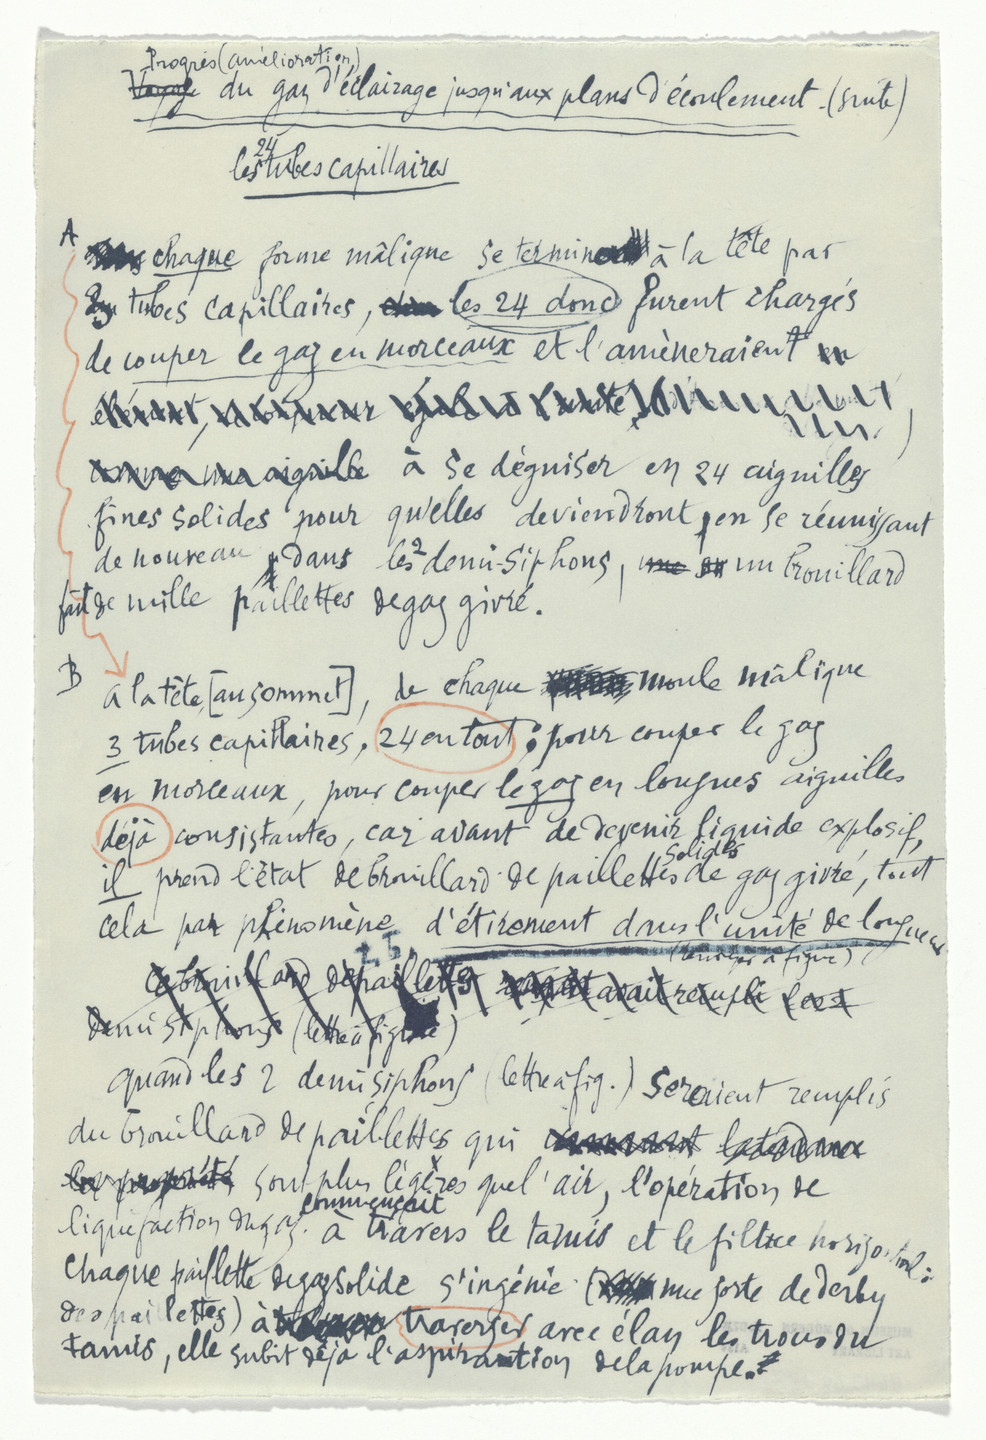 Progrès (amélioration)
Voyage du gaz d'éclairage jusqu'aux plans d'écoulement. (suite)
24
les tubes capillaires
A
chaque forme mâlique se termine à la tête par
tubes capillaires, les 24 donc furent chargés
de couper le gaz en morceaux et l'amèneraient
comme une aiguille à se déguiser en 24 aiguilles
fines solides pour qu'elles deviendront, en se réunissant
de nouveau, dans les 2 demi-siphons, un brouillard
fait de mille paillettes de gaz givré.
B
à la tête, [au sommet], de chaque moule mâlique
3 tubes capillaires, 24 en tout; pour couper le gaz
en morceaux, pour couper le gaz en longues aiguilles
déjà consistantes, car avant de devenir liquide explosif,
solides
il prend l'état de brouillard de paillettes de gaz givré, tout
cela par phénomène d'étirement dans l'unité de longueur
(renvoyer à figure)
ce brouillard de paillettes avait rempli les
demi siphons (lettre à figure)
quand les 2 demi siphons (lettre à fig.) seraient remplis
du brouillard de paillettes qui
les propriété sont plus légères que l'air, l'opération de
commençait
liquéfaction du gaz. à travers le tamis et le filtre horizontal:
chaque paillette de gaz solide s'ingénie (une sorte de derby
des paillettes) à traverser avec élan les trous du
tamis, elle subit déjà l'aspiration de la pompe.